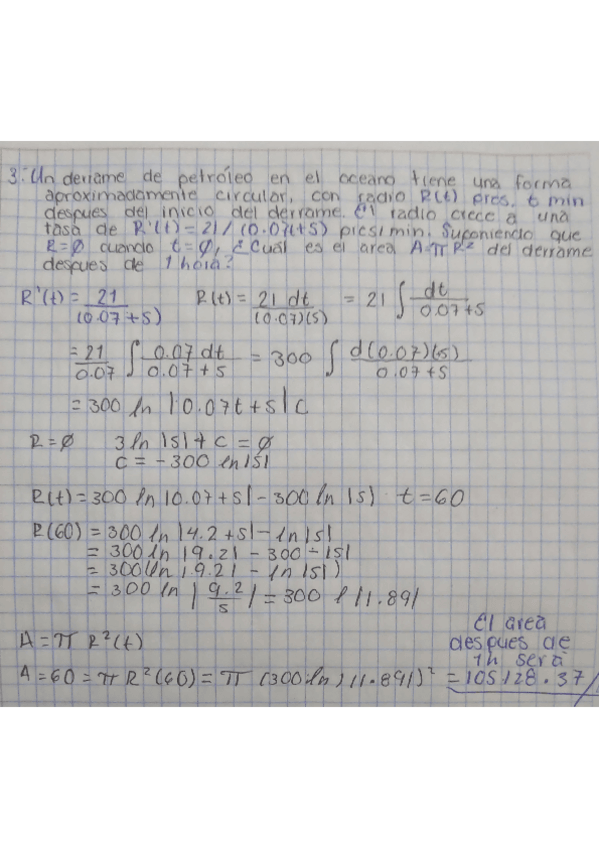 3. Un derrame de petróleo en el oceano tiene una forma
aproximadamente circular, con radio R(t) pies. t min
despues del inicio del derrame. El radio crece a una
tasa de R'(t) = 21 / (0.07t+5) pies/min. Suponiendo que
R=0 cuando t=0, ¿Cuál es el area A=πR² del derrame
despues de 1 hora?
R'(t) = 21 / (0.07+5) R(t) = 21 dt / (0.07)(5) = 21 ∫ dt / 0.07+5
= 21 / 0.07 ∫ 0.07 dt / 0.07+5 = 300 ∫ d(0.07)(5) / 0.07+5
= 300 ln |0.07t+5| C
R=0 3 ln |5| + C = 0
C = -300 ln |5|
R(t) = 300 ln |0.07+5| - 300 ln |5) t=60
R(60) = 300 ln |4.2+5| - ln |5|
= 300 ln |9.2| - 300 - |5|
= 300(ln |9.2| - ln |5|)
= 300 ln | 9.2 / 5 | = 300 l |1.89|
A = π R²(t)
A = 60 = π R²(60) = π (300 ln) |1.89|)² = 105128.37
El area
despues de
1h será